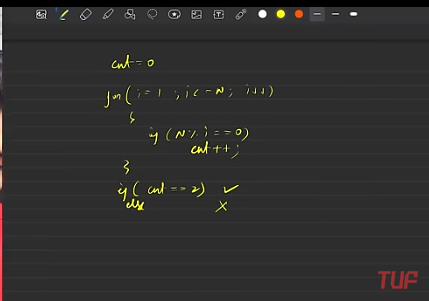 cnt = 0
for( i = 1 ; i <= N; i++)
{
if (N % i == 0)
cnt++;
}
if ( cnt == 2) ✓
else X
TUF